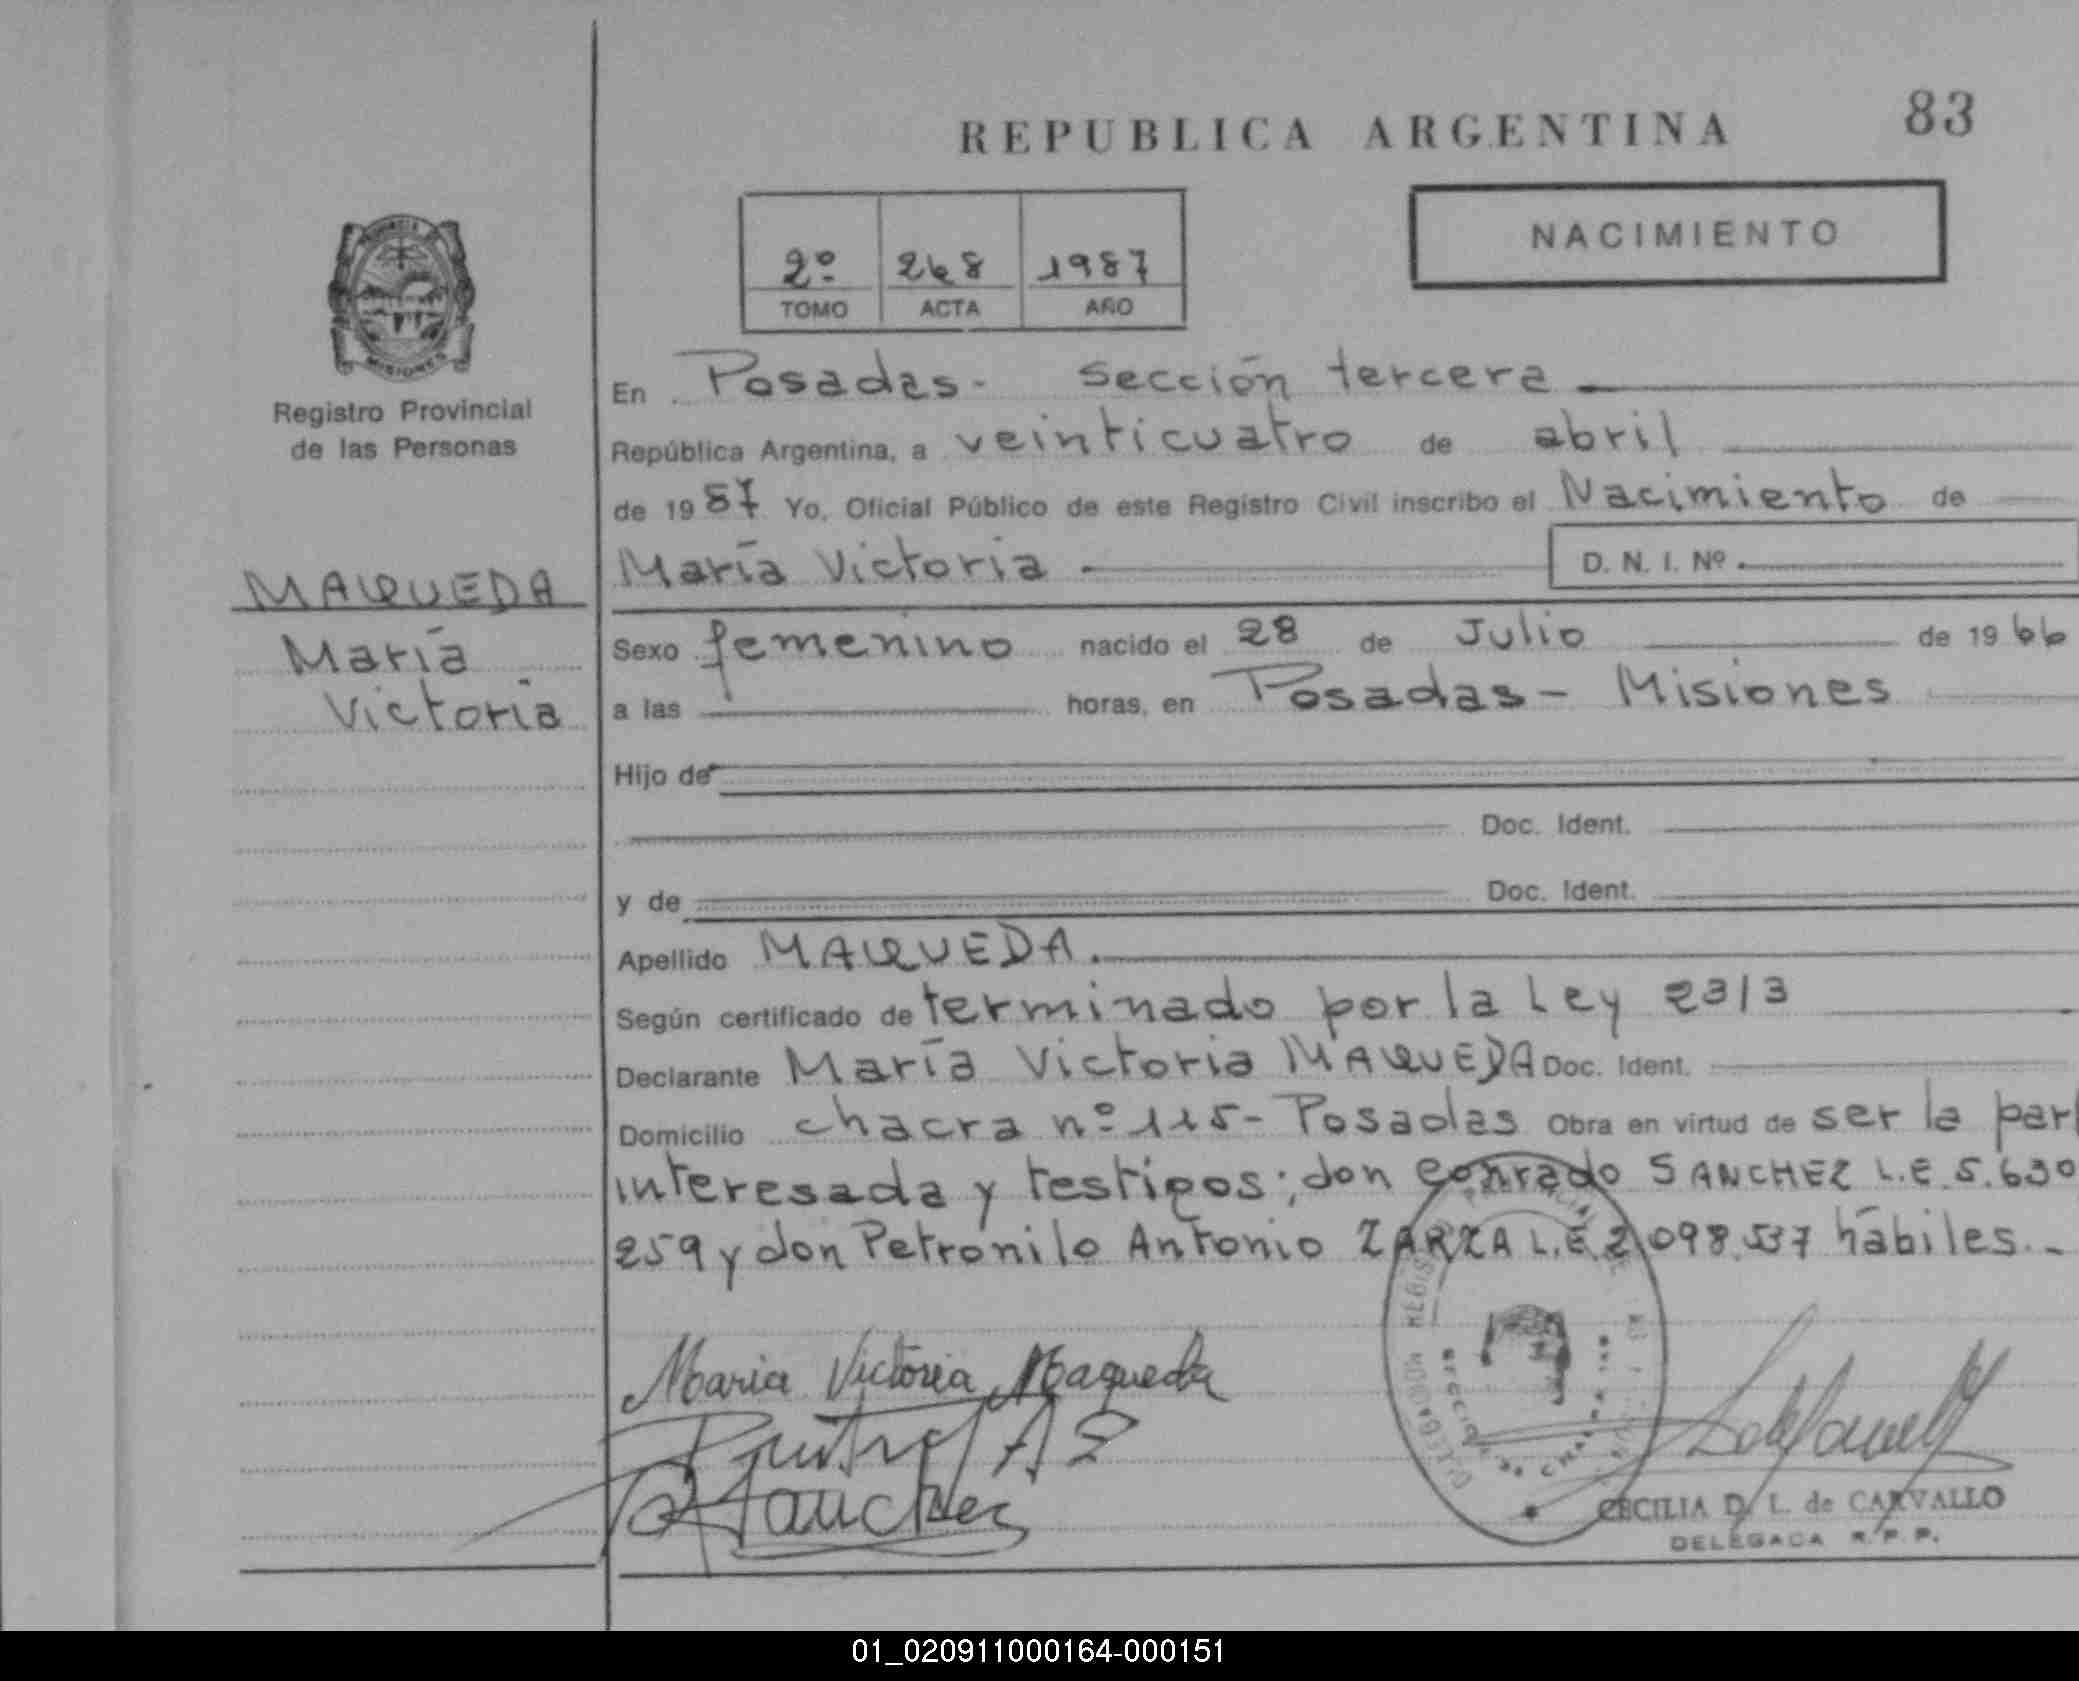 REPUBLICA ARGENTINA
83
NACIMIENTO
2º 268 1987
TOMO ACTA AÑO
PROVINCIA
MISIONES
Registro Provincial
de las Personas
MAQUEDA
María
Victoria
En Posadas - Sección tercera
República Argentina, a veinticuatro de abril
de 1987 Yo, Oficial Público de este Registro Civil inscribo el Nacimiento de
María Victoria - D. N. I. Nº
Sexo femenino nacido el 28 de Julio de 1966
a las horas, en Posadas - Misiones
Hijo de
Doc. Ident.
y de Doc. Ident.
Apellido MAQUEDA.
Según certificado de terminado por la Ley 23/3
Declarante María Victoria MAQUEDA Doc. Ident.
Domicilio chacra nº 115 - Posadas Obra en virtud de ser la par
interesada y testigos; don conrado SANCHEZ L.E. 5.630
259 y don Petronilo Antonio ZARZA L.E. 2.098.537 hábiles. -
Maria Victoria Maqueda
A Z
Sanchez
CECILIA D. L. de CARVALLO
DELEGADA R. P. P.
01_020911000164-000151